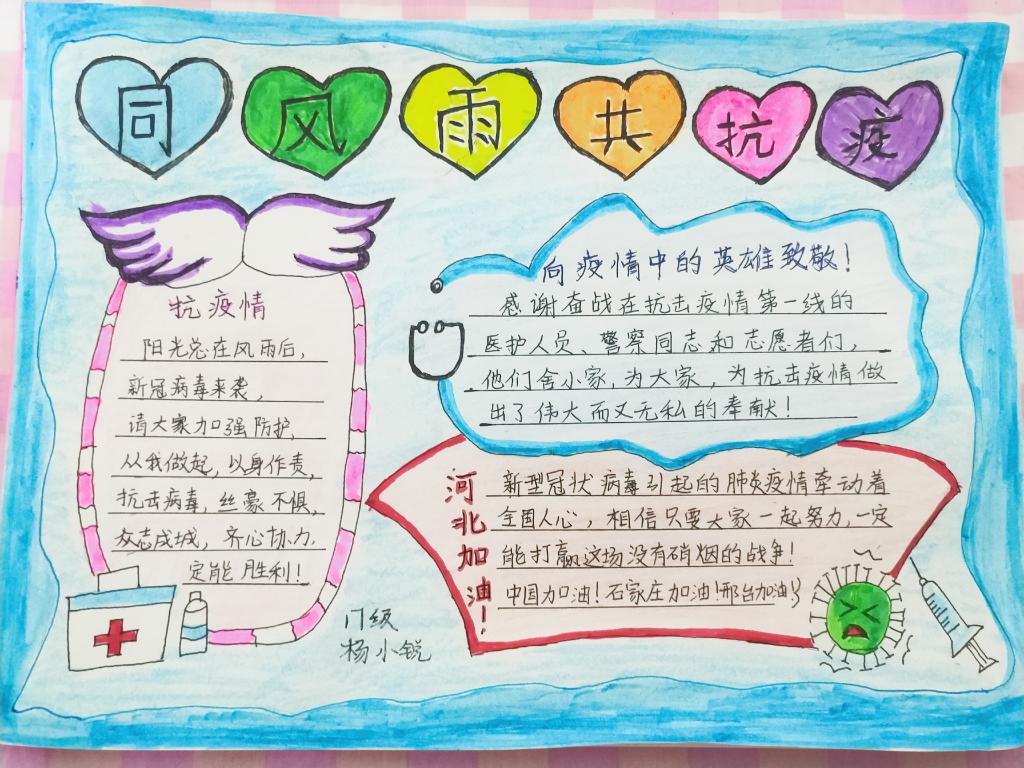 同风雨共抗疫
抗疫情
阳光总在风雨后，
新冠病毒来袭，
请大家加强防护，
从我做起，以身作责，
抗击病毒，丝豪不惧，
众志成城，齐心协力，
定能胜利！
向疫情中的英雄致敬！
感谢奋战在抗击疫情第一线的
医护人员、警察同志和志愿者们，
他们舍小家，为大家，为抗击疫情做
出了伟大而又无私的奉献！
河北加油！
新型冠状病毒引起的肺炎疫情牵动着
全国人心，相信只要大家一起努力，一定
能打赢这场没有硝烟的战争！
中国加油！石家庄加油！邢台加油！
杨小锐